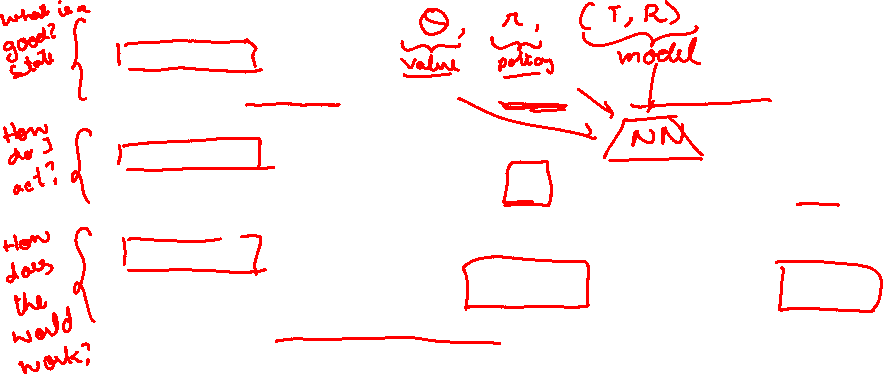 What is a
good?
state
How
do I
act?
How
does
the
world
work?
Θ, π, (T, R)
value policy model
NN